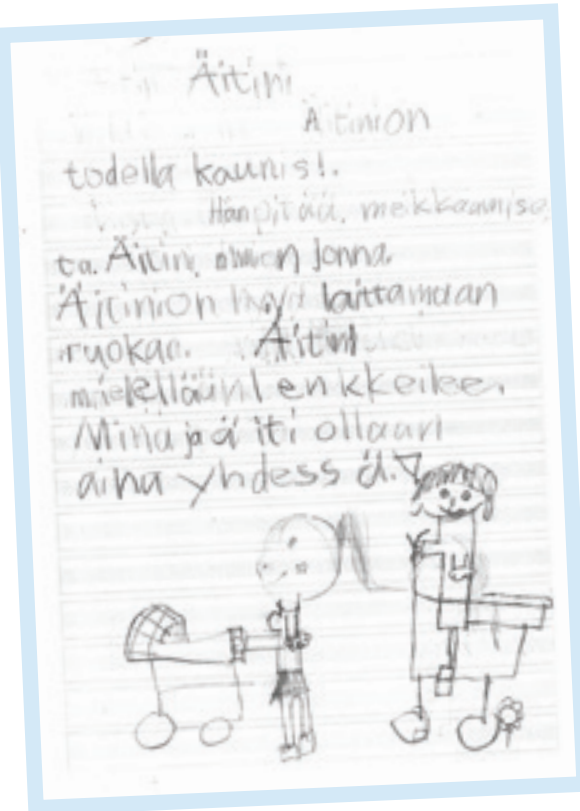 Äitini
Äitinion
todella kaunis!.
Hän pitää. meikkaamise
ta. Äitini nimion Jonna.
Äitinion hyvä laittamaan
ruokaa. Äitini
mielellään lenkkeilee.
Minä ja äiti ollaan
aina yhdessä.